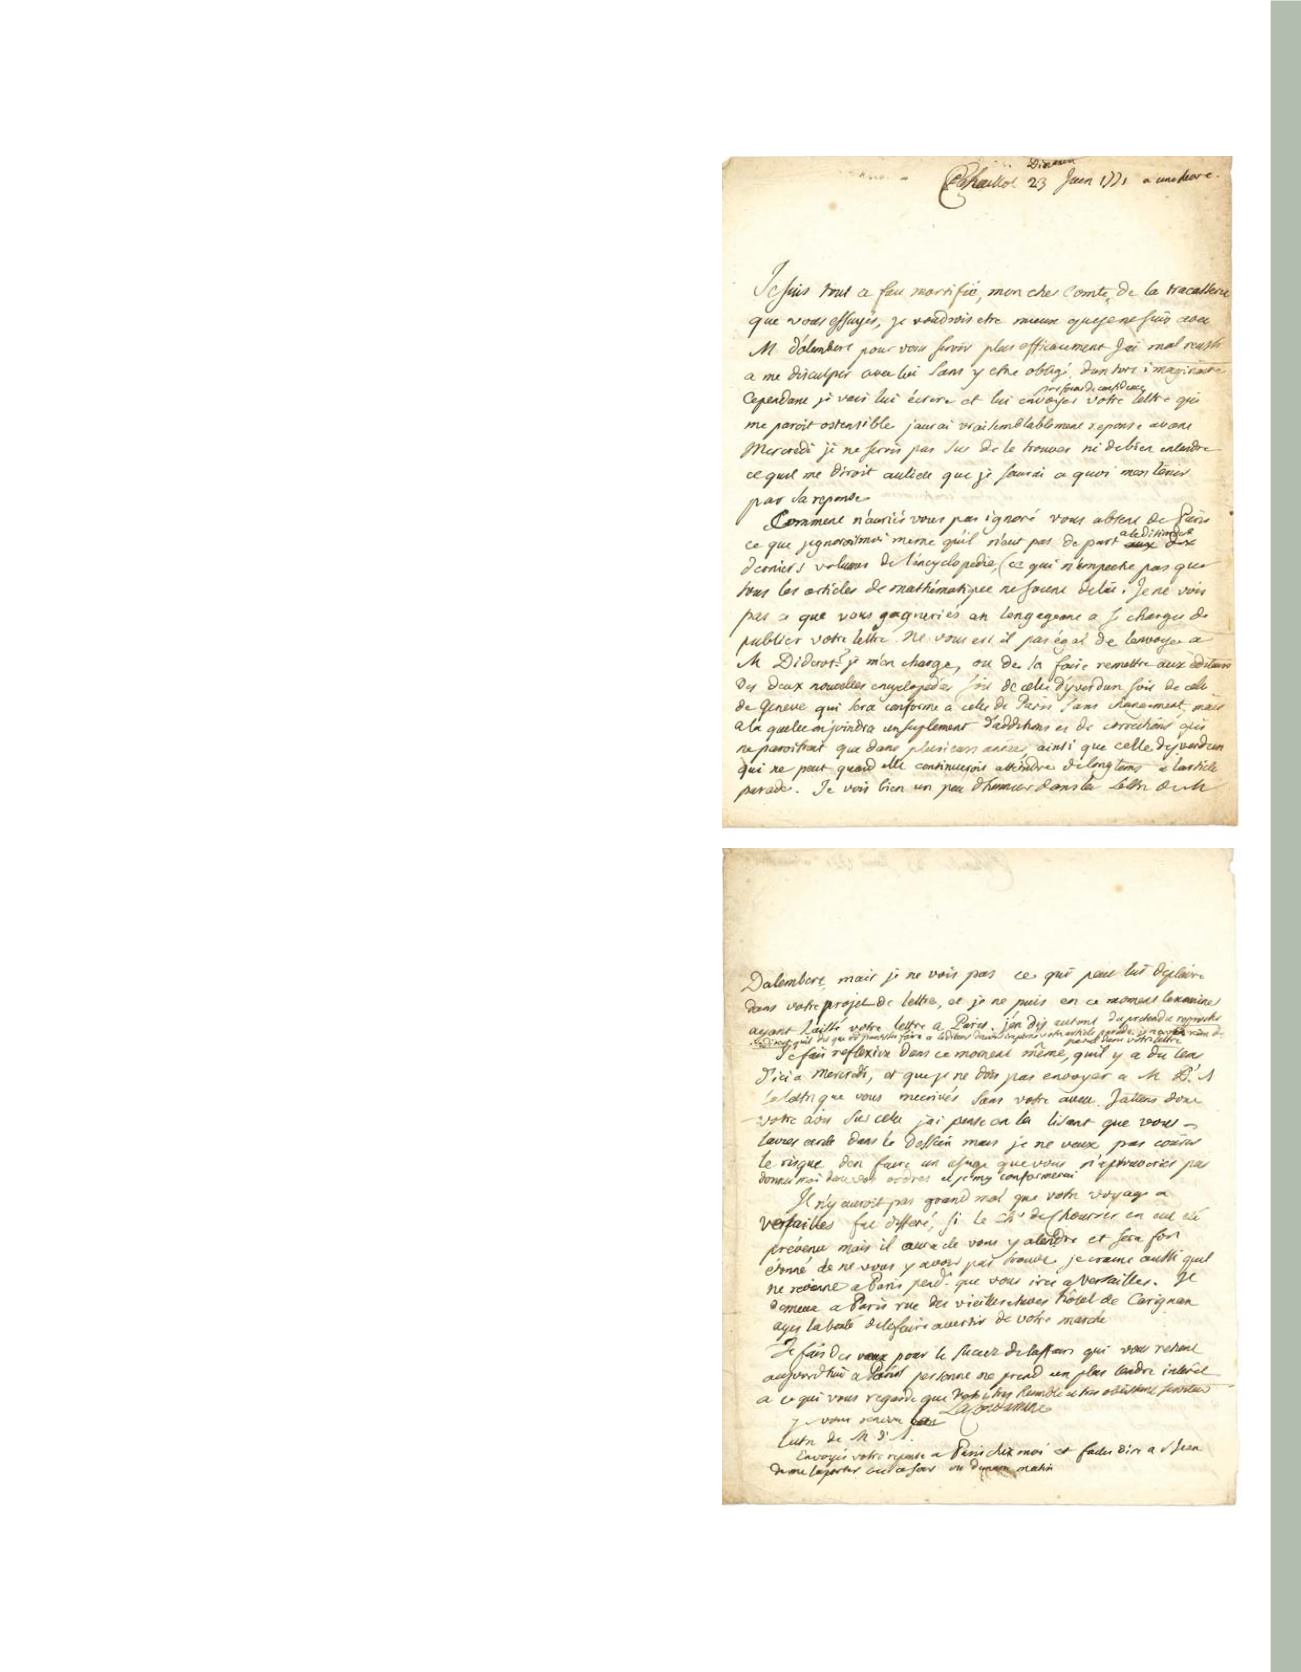 Dimanch
Chaillot 23 Juin 1771 a une heure.
Je suis tout a fait mortifié, mon cher Comte, de la tracasserie
que vous essuyés, je voudrois etre mieux que je ne suis avec
M d'alembert pour vous servir plus efficacement J'ai mal reussi
a me disculper avec lui sans y etre obligé, d'un tort imaginaire
par forme de confidence
Cependant je vais lui écrire et lui envoyer votre lettre qui
me paroit ostensible j'aurai vraisemblablement reponse avant
Mercredi je ne serois pas sur de le trouver ni de bien entendre
ce quil me diroit aulieu que je saurai a quoi m'en tenir
par sa reponse
Comment n'auriés vous pas ignoré vous absent de Paris
ce que j'ignorois moi meme qu'il n'eut pas de part a l'edition des
aux dix
derniers volumes de l'encyclopedie, (ce qui n'empeche pas que
tous les articles de mathématique ne soient de lui; Je ne vois
pas a que vous gagneriés en l'engageant a se charger de
publier votre lettre. Ne vous est il pas égal de l'envoyer a
M Diderot? je m'en charge, ou de la faire remettre aux éditeurs
des deux nouvelles encyclopedies soit de celle d'yverdun soit de celle
de Geneve qui sera conforme a celle de Paris sans changement, mais
a la quelle on joindra un suplement d'additions et de corrections qui
ne paroitront que dans plusieurs années, ainsi que celle d'yverdun
qui ne peut quand elle continueroit atteindre de longtems a l'article
parade. Je vois bien un peu d'humeur dans la lettre de M
Dalembert, mais je ne vois pas ce qui peut lui deplaire
dans votre projet de lettre, et je ne puis en ce moment l'examiner
ayant laissé votre lettre a Paris. j'en dis autant du pretendu reproche
votre article parade, je n'ai rien
dans votre lettre
Je fais reflexion dans ce moment même, qu'il y a du tems
d'ici a mercredi, et que je ne dois pas envoyer a M D'A
la lettre que vous mecrivés sans votre aveu. J'attens donc
votre avis sur cela j'ai pensé en la lisant que vous
l'aviés ecrite dans le dessein mais je ne veux pas courir
le risque d'en faire un usage que vous n'aprouveriés pas
donnez moi donc vos ordres et je m'y conformerai
Il n'y auroit pas grand mal que votre voyage a
versailles fut differé, si le Ch.r de en eut eté
prévenu mais il aura de vous y atendre et sera fort
étonné de ne vous y avoir pas trouvé je crains aussi quil
ne revienne a Paris pend.t que vous irés a Versailles. Je
demeure a Paris rue des vieilles etuves hôtel de Carignan
ayés la bonté de le faire avertir de votre marche
Je fais des vœux pour le succez de l'affaire qui vous retient
aujourd'hui a Paris personne ne prend un plus tendre interêt
a ce qui vous regarde que votre tres humble et tres obéissant serviteur
La Condamine
je vous renvoie la
lettre de M d'A.
Envoyés votre reponse a Paris chez moi et faites dire a S.t Jean
de me l'aporter ou ce soir ou demain matin